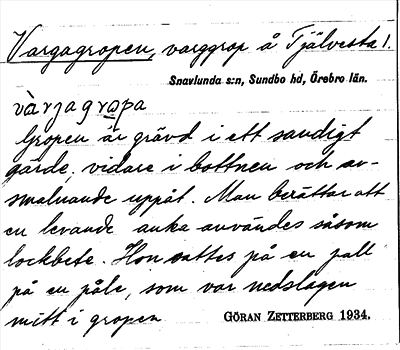 Vargagropen, varggrop å Tjälvesta 1.
Snavlunda s:n, Sundbo hd, Örebro län.
vàrgagro̲pa
Gropen är grävd i ett sandigt
gärde, vidare i bottnen och av-
smalnande uppåt. Man berättar att
en levande anka användes såsom
lockbete. Hon sattes på en pall
på en påle, som var nedslagen
mitt i gropen
GÖRAN ZETTERBERG 1934.